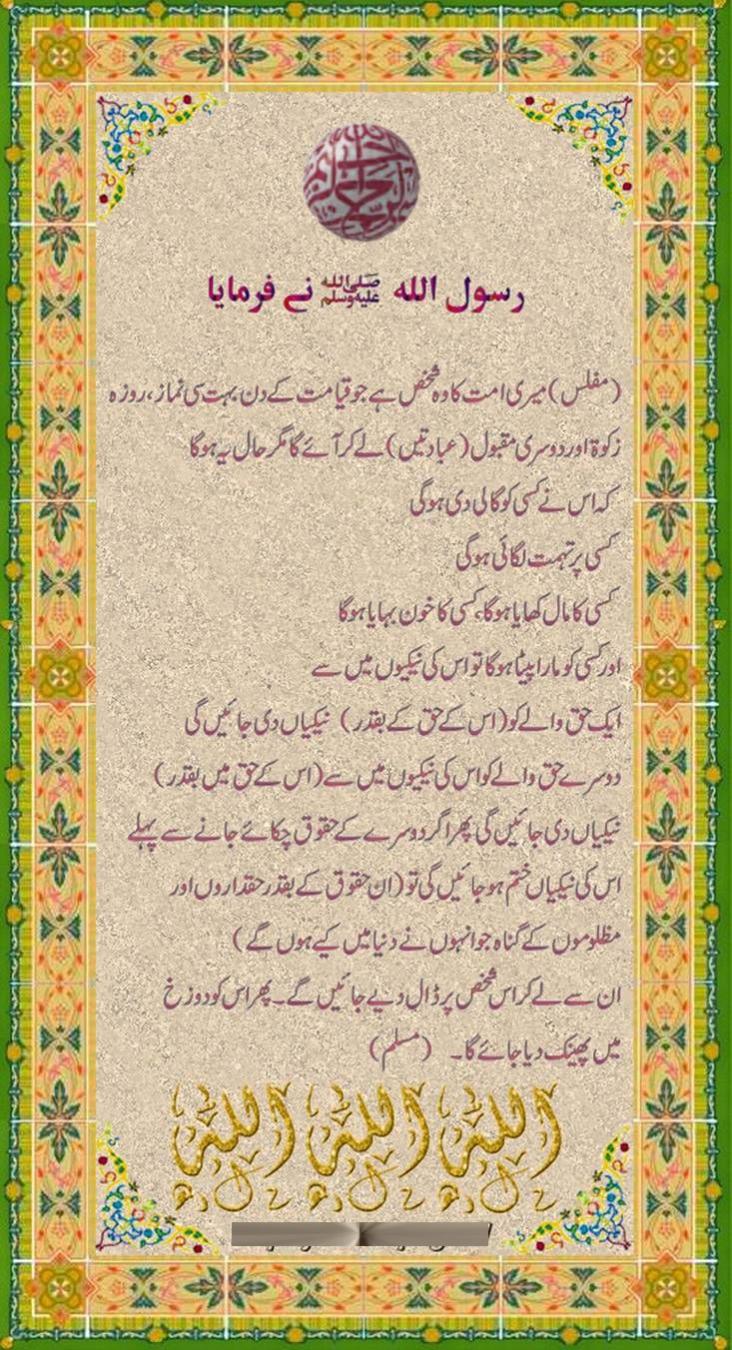 رسول الله ﷺ نے فرمایا
(مفلس) میری امت کا وہ شخص ہے جو قیامت کے دن بہت سی نماز، روزہ
زکوۃ اور دوسری مقبول (عبادتیں) لے کر آئے گا مگر حال یہ ہوگا
کہ اس نے کسی کو گالی دی ہوگی
کسی پر تہمت لگائی ہوگی
کسی کا مال کھایا ہوگا، کسی کا خون بہایا ہوگا
اور کسی کو مارا پیٹا ہوگا تو اس کی نیکیوں میں سے
ایک حق والے کو (اس کے حق کے بقدر) نیکیاں دی جائیں گی
دوسرے حق والے کو اس کی نیکیوں میں سے (اس کے حق میں بقدر)
نیکیاں دی جائیں گی پھر اگر دوسرے کے حقوق چکائے جانے سے پہلے
اس کی نیکیاں ختم ہو جائیں گی تو (ان حقوق کے بقدر حقداروں اور
مظلوموں کے گناہ جو انہوں نے دنیا میں کیے ہوں گے)
ان سے لے کر اس شخص پر ڈال دیے جائیں گے۔ پھر اس کو دوزخ
میں پھینک دیا جائے گا۔ (مسلم)
الله الله الله